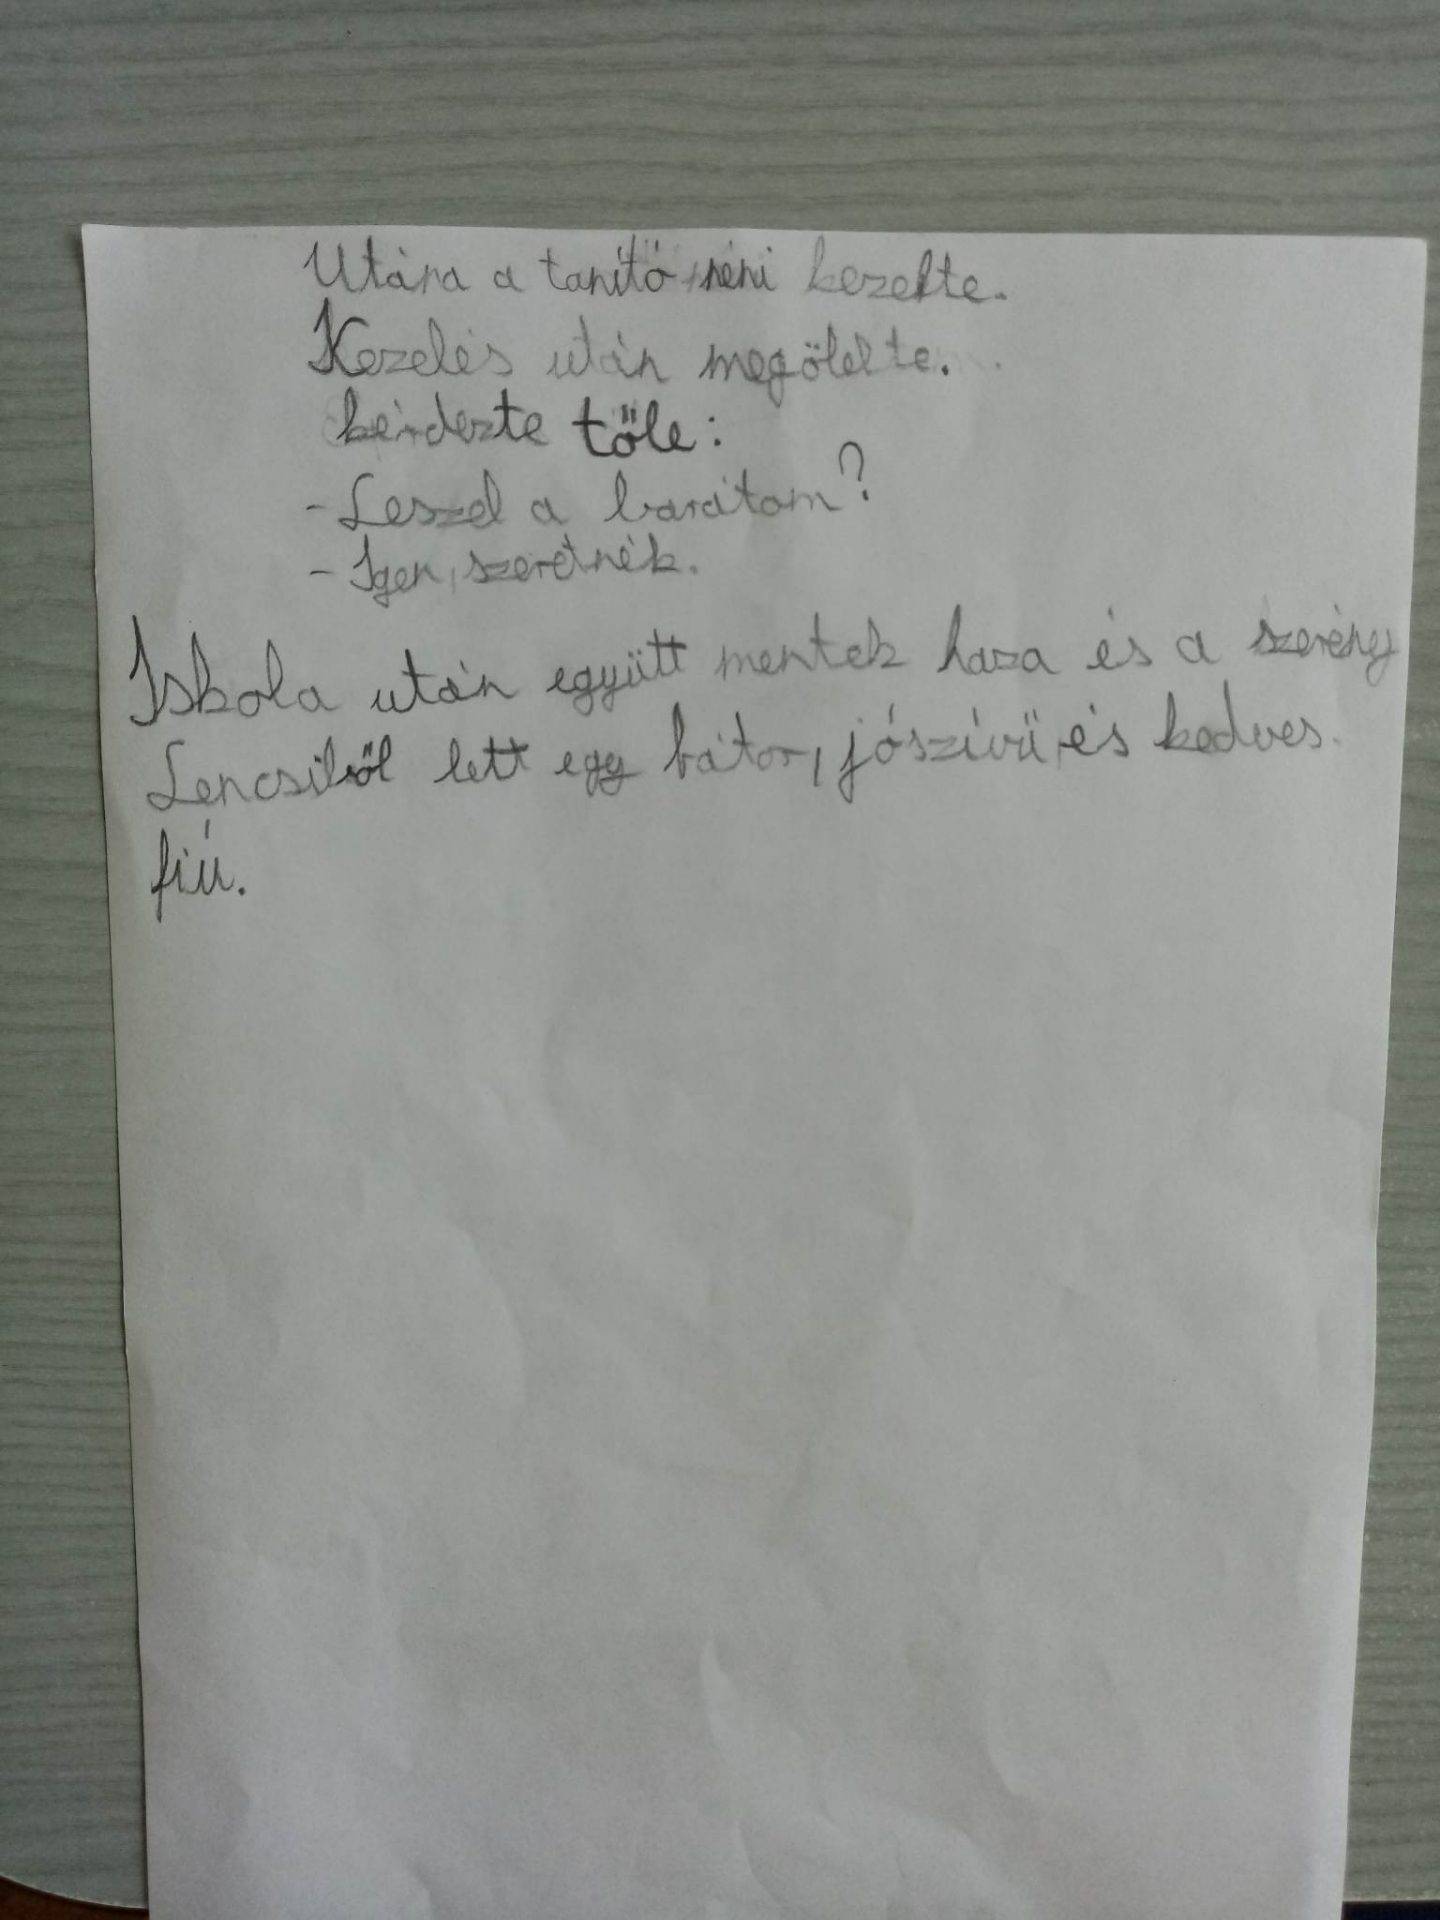 Utána a tanitö néni kezelte.
Kezelés után megölelte.
kérdezte tőle:
-Leszel a barátom?
- Igen, szeretnék.
Iskola után együtt mentek haza és a szerény
Lencsiből lett egy bátor, jószívü és kedves.
fiú.